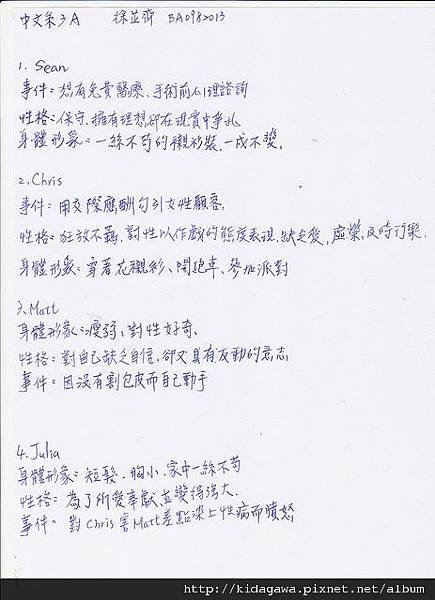 中文系3A 徐苙齊 BA0982013
1. Sean
事件：想有免費醫療、手術前心理諮詢
性格：保守、擁有理想卻在現實中爭扎
身體形象：一絲不苟的襯衫裝，一成不變。
2. Chris
事件：用交際應酬勾引女性顧客。
性格：狂放不羈，對性以作戲的態度表現，缺乏愛，虛榮，及時行樂.
身體形象：穿著花襯衫、開跑車、參加派對
3. Matt
身體形象：瘦弱、對性好奇.
性格：對自己缺乏自信，卻又具有反動的意志.
事件：因沒有割包皮而自己動手
4. Julia
身體形象：短髮、胸小、家中一絲不苟
性格：為了所愛奉獻，並變得強大.
事件：對Chris害Matt差點染上性病而憤怒
http://kidagawa.pixnet.net/album